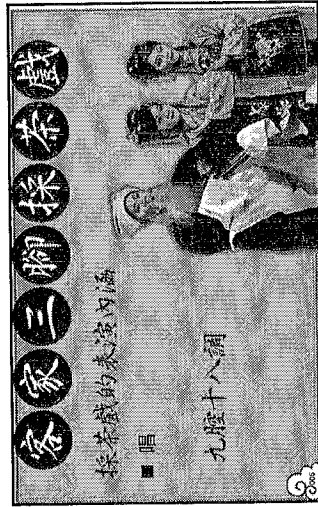 客家三腳採茶戲
採茶戲的表演內涵
■ 唱
九腔十八調